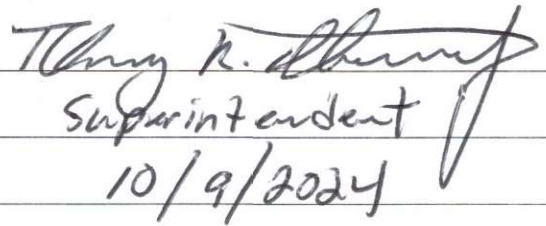 R.
Superintendent
10/9/2024